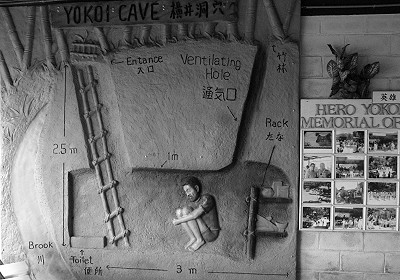 YOKOI CAVE 横井洞穴
Entrance
入口
Ventilating
Hole
通気口
竹林
Rack
たな
2.5m
1m
Brook
川
Toilet
便所
3 m
英雄
HERO YOKO
MEMORIAL OF